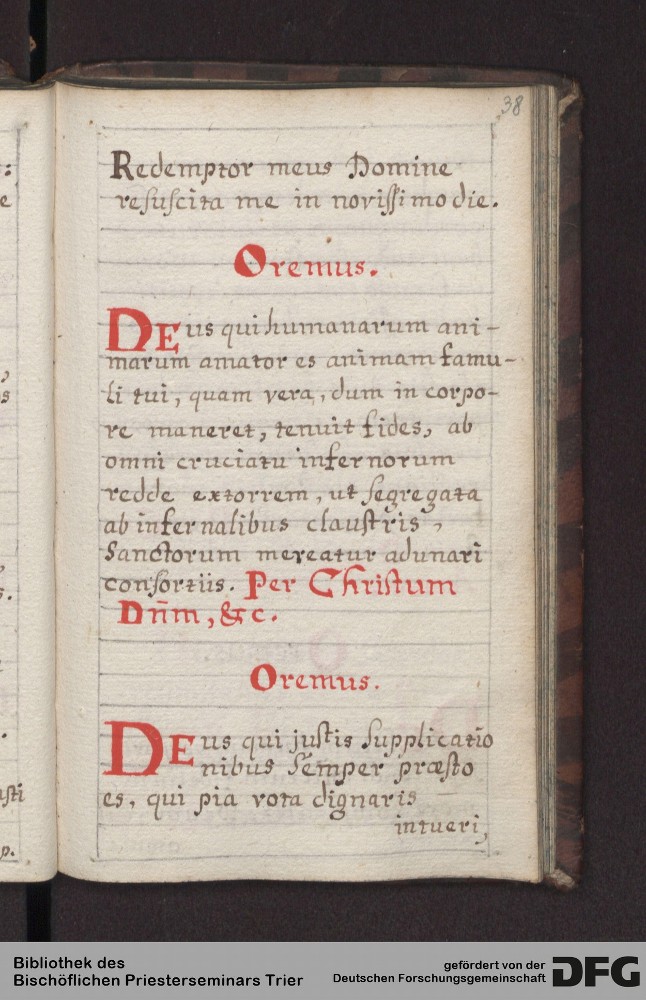 38
Redemptor meus Domine
resuscita me in novissimo die.
Oremus.
DEus qui humanarum ani-
marum amator es animam famu-
li tui, quam vera, dum in corpo-
re maneret, tenuit fides, ab
omni cruciatu infernorum
redde extorrem, ut segregata
ab infernalibus claustris,
Sanctorum mereatur adunari
consortiis. Per Christum
Dñm, &c.
Oremus.
DEus qui justis supplicatio
nibus semper præsto
es, qui pia vota dignaris
intueri,
Bibliothek des
Bischöflichen Priesterseminars Trier
gefördert von der
Deutschen Forschungsgemeinschaft
DFG